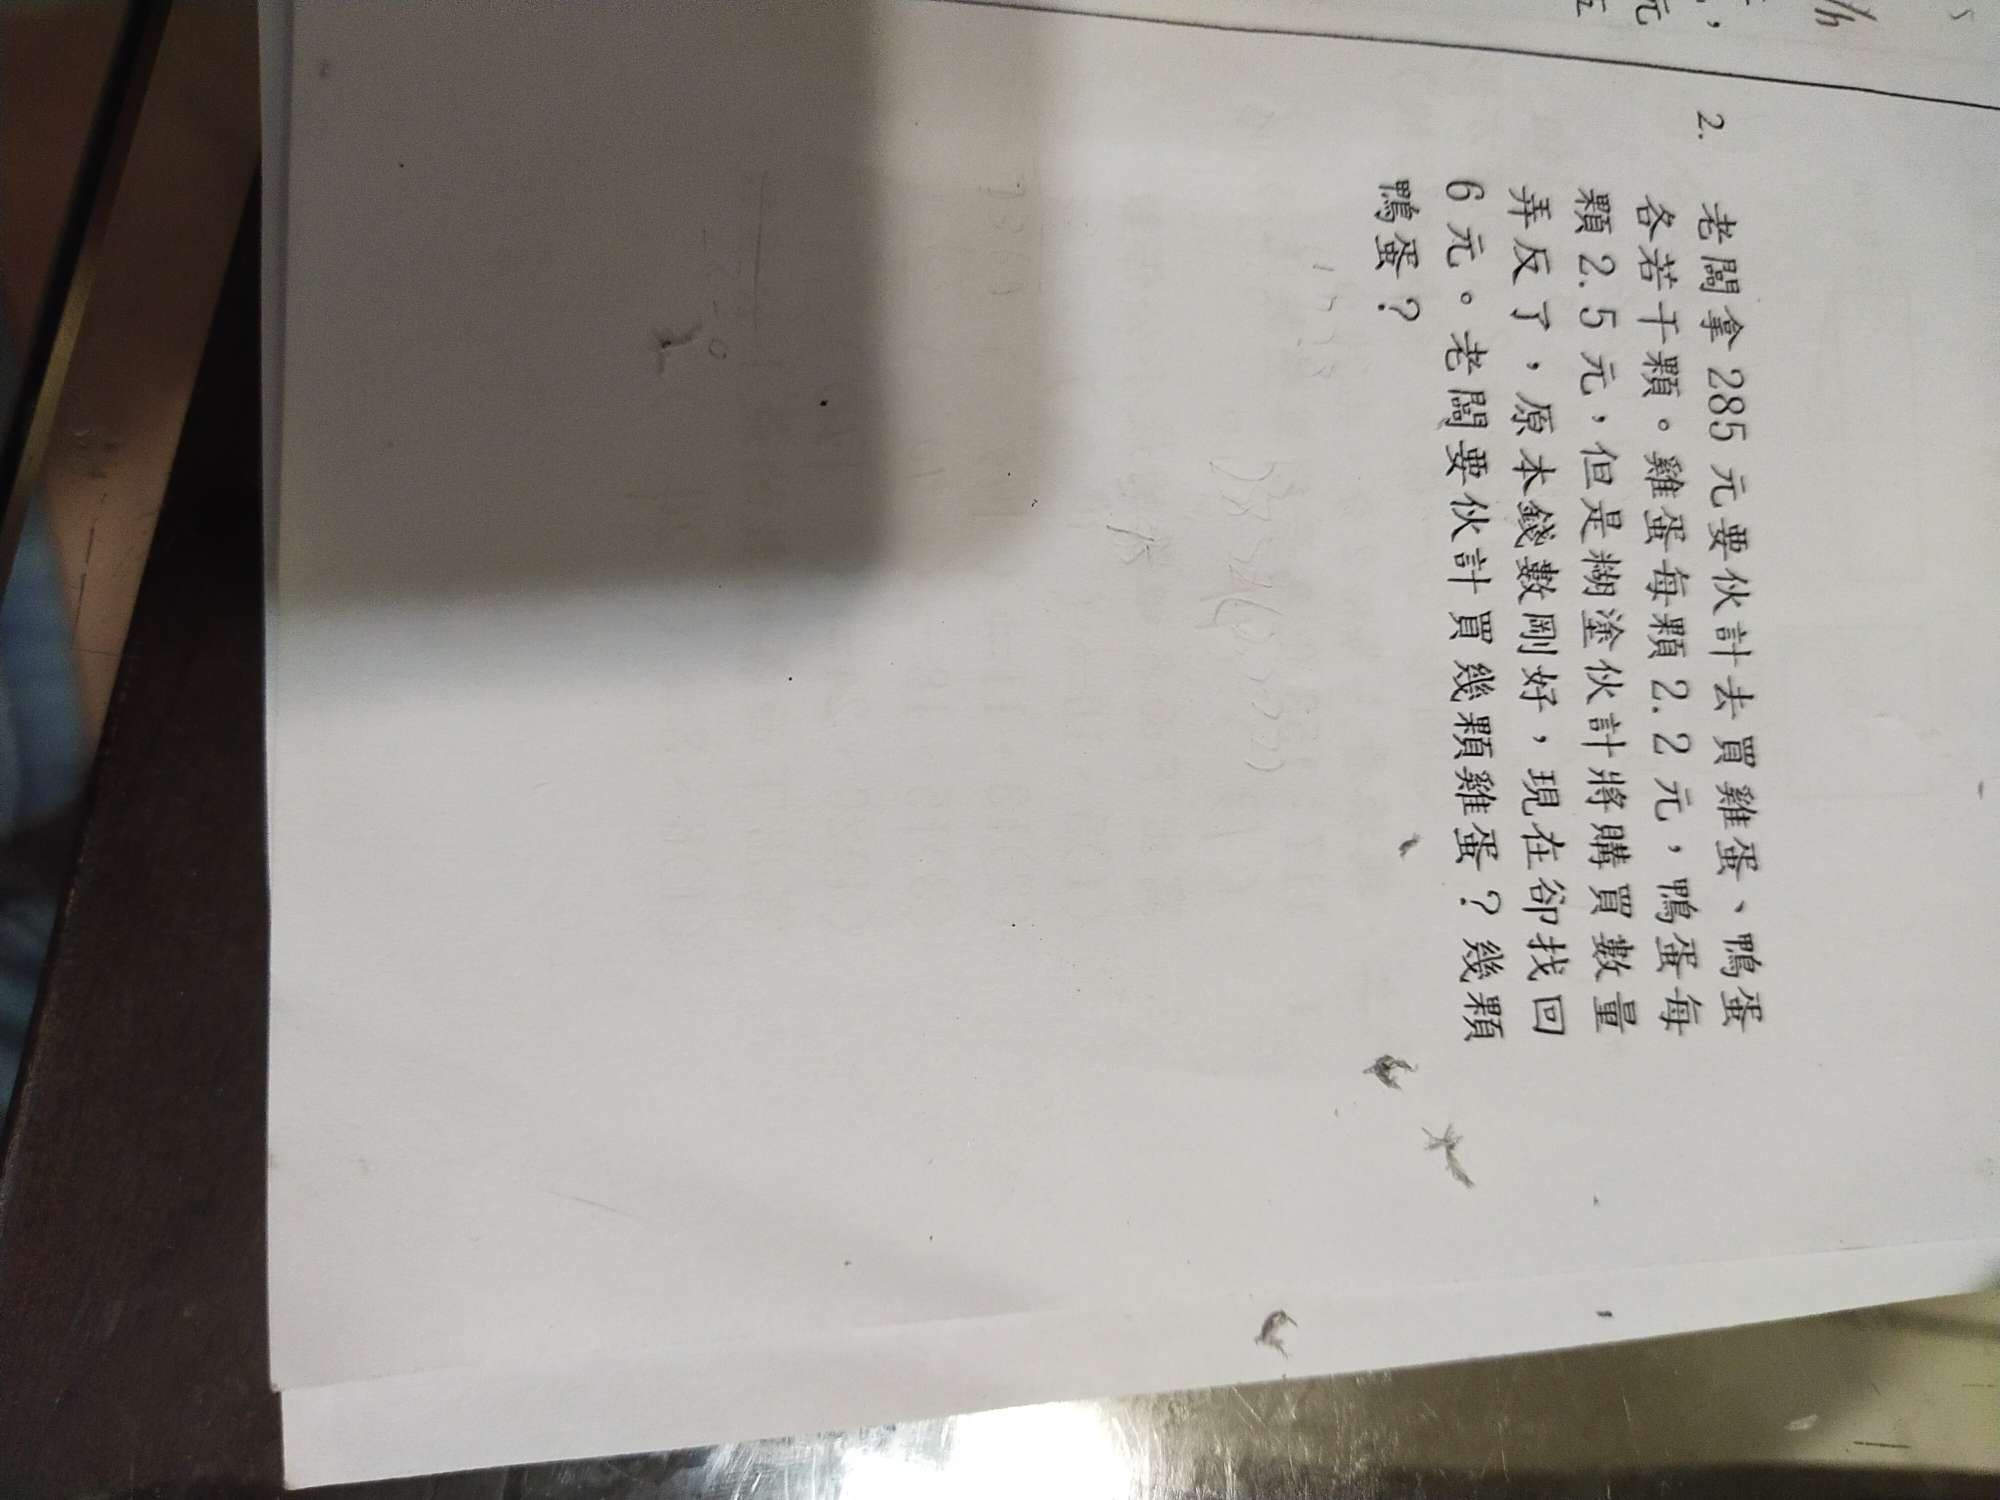 2. 老闆拿 285 元要伙計去買雞蛋、鴨蛋
各若干顆。雞蛋每顆 2.2 元，鴨蛋每
顆 2.5 元，但是糊塗伙計將購買數量
弄反了，原本錢數剛好，現在卻找回
6 元。老闆要伙計買幾顆雞蛋？幾顆
鴨蛋？